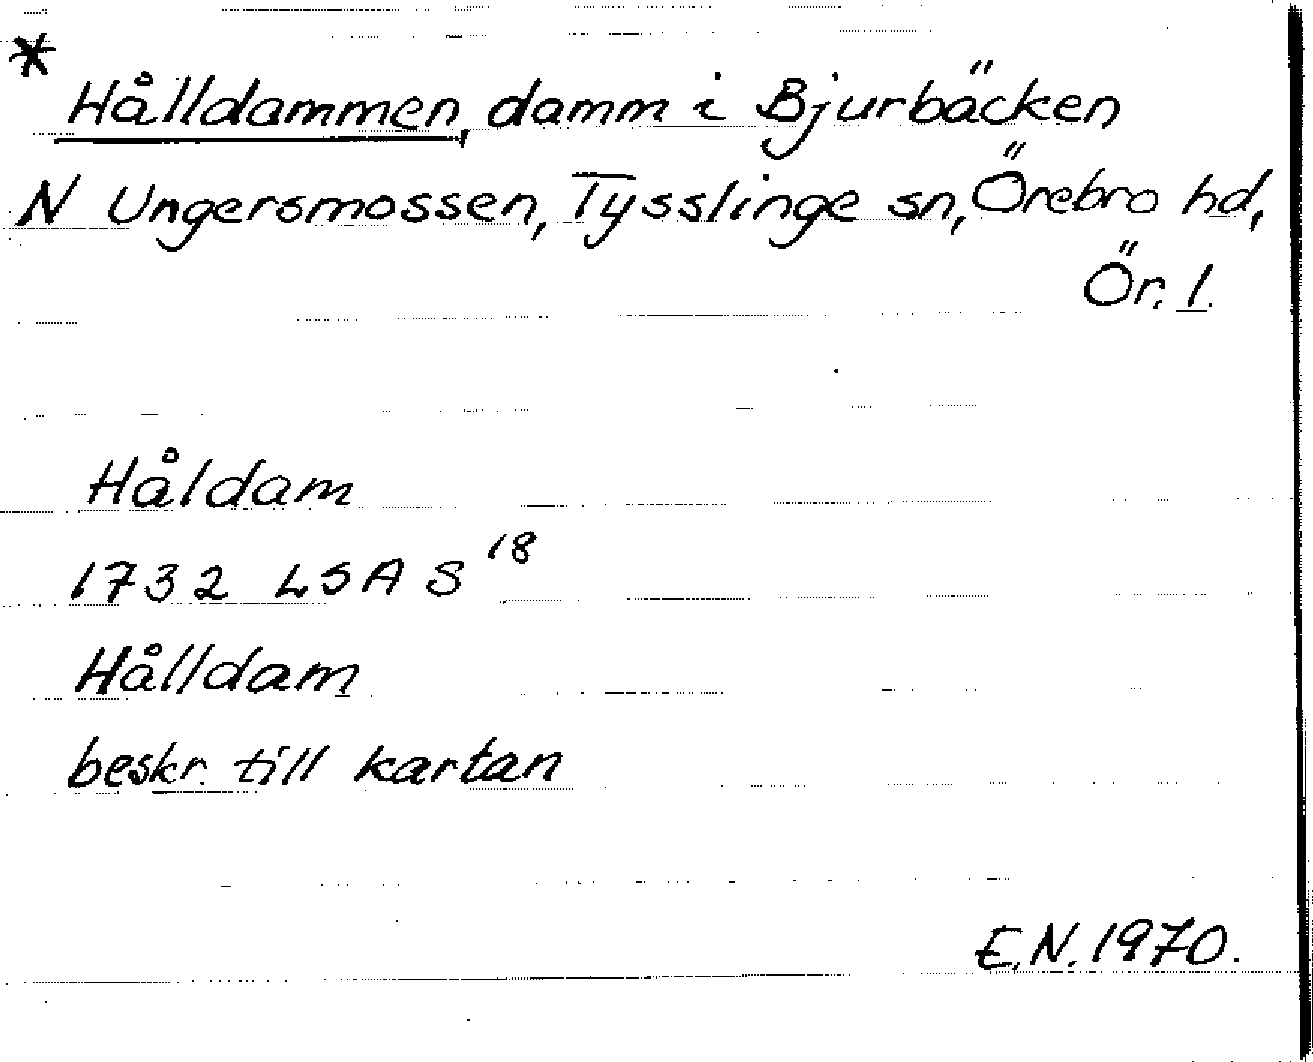 * Hålldammen, damm i Bjurbäcken
N Ungersmossen, Tysslinge sn, Örebro hd,
Ör. l.
Håldam
1732 LSA S 18
Hålldam
beskr. till kartan
E.N. 1970.